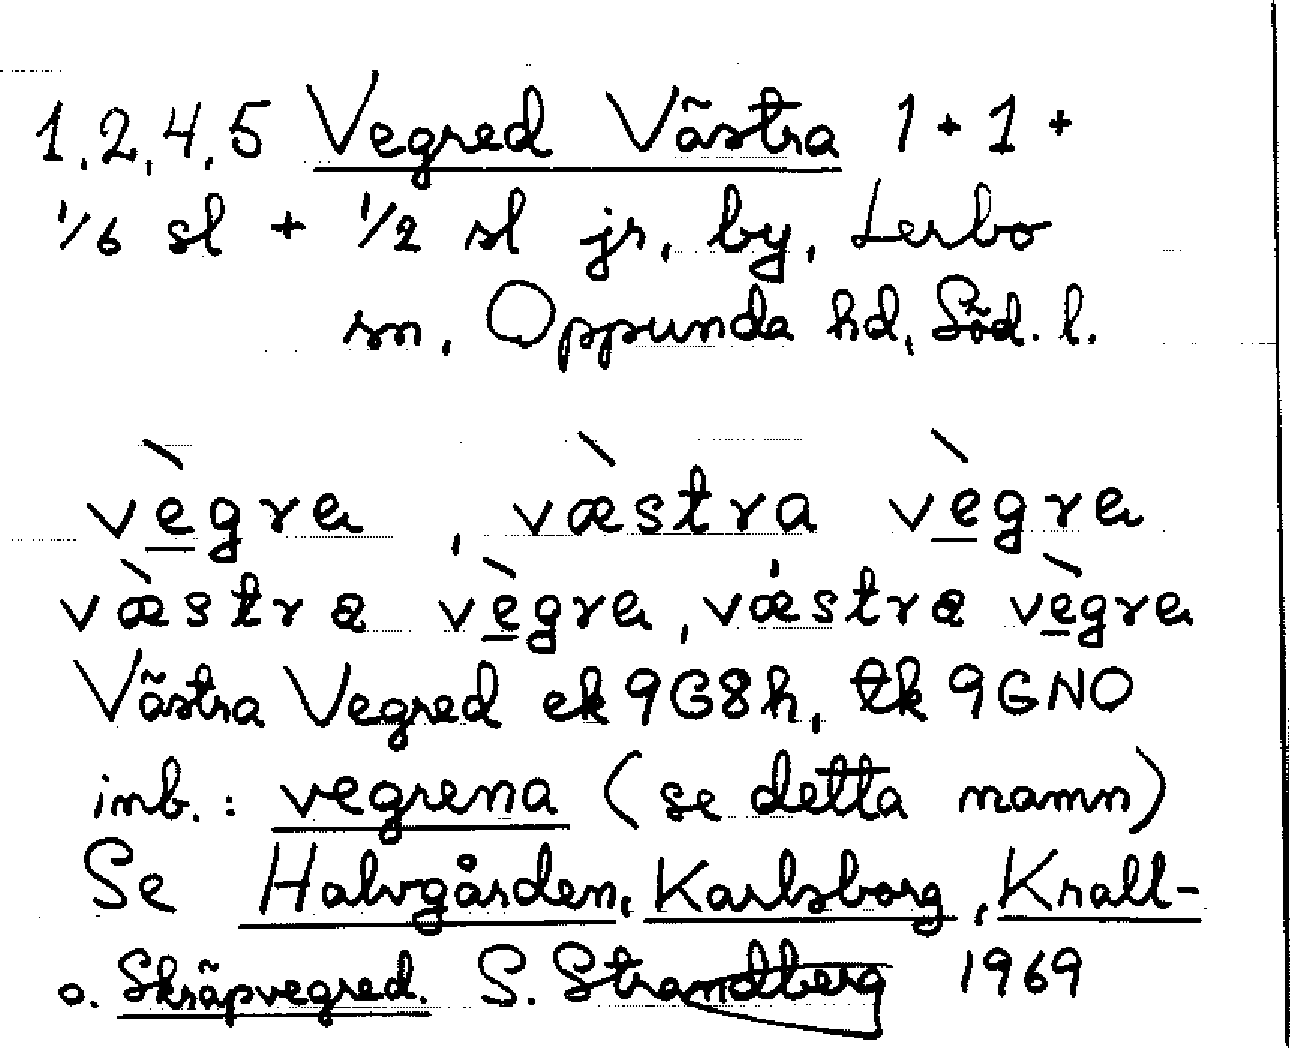 1,2,4,5 Vegred Västra 1 + 1 +
1/6 sl + 1/2 sl jr, by, Lerbo
sn, Oppunda hd, Söd. l.
vè̱gre, væ̀stra vè̱gre
væ̀strə vè̱gre, vǽstrə vè̱gre
Västra Vegred ek 9G8h, tk 9GNO
inb.: vegrena (se detta namn)
Se Halvgården, Karlsborg, Knall-
o. Skräpvegred. S. Strandberg 1969